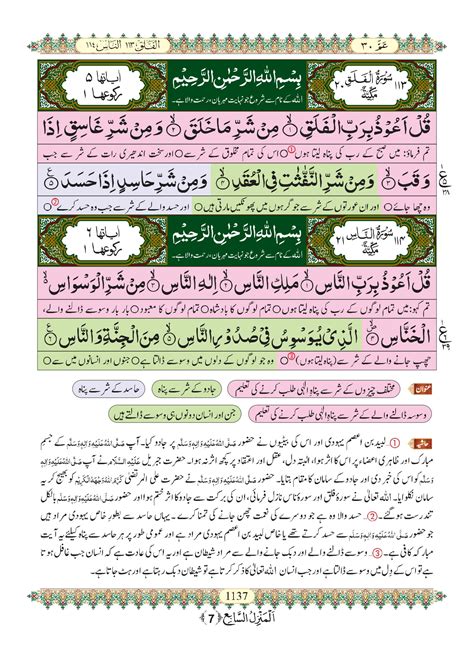 الفلق ١١٣ الناس ١١٤
عمّ ٣٠
سُوْرَةُ الْفَلَقِ مَكِّيَّةٌ ١١٣ ٢٠
بِسْمِ اللهِ الرَّحْمٰنِ الرَّحِيْمِ
اللہ کے نام سے شروع جو نہایت مہربان، رحمت والا ہے۔
اٰیاتها ٥ رکوعها ١
قُلْ اَعُوْذُ بِرَبِّ الْفَلَقِ ١ مِنْ شَرِّ مَا خَلَقَ ٢ وَ مِنْ شَرِّ غَاسِقٍ اِذَا
تم فرماؤ: میں صبح کے رب کی پناہ لیتا ہوں ① اس کی تمام مخلوق کے شر سے اور سخت اندھیری رات کے شر سے جب
وَقَبَ ٣ وَ مِنْ شَرِّ النَّفّٰثٰتِ فِی الْعُقَدِ ٤ وَ مِنْ شَرِّ حَاسِدٍ اِذَا حَسَدَ ٥
وہ چھا جائے اور ان عورتوں کے شر سے جو گرہوں میں پھونکیں مارتی ہیں اور حسد والے کے شر سے جب وہ حسد کرے ②
سُوْرَةُ النَّاسِ مَكِّيَّةٌ ١١٤ ٢١
بِسْمِ اللهِ الرَّحْمٰنِ الرَّحِيْمِ
اللہ کے نام سے شروع جو نہایت مہربان، رحمت والا ہے۔
اٰیاتها ٦ رکوعها ١
قُلْ اَعُوْذُ بِرَبِّ النَّاسِ ١ مَلِكِ النَّاسِ ٢ اِلٰهِ النَّاسِ ٣ مِنْ شَرِّ الْوَسْوَاسِ
تم کہو: میں تمام لوگوں کے رب کی پناہ لیتا ہوں تمام لوگوں کا بادشاہ تمام لوگوں کا معبود بار بار وسوسے ڈالنے والے،
الْخَنَّاسِ ٤ الَّذِیْ یُوَسْوِسُ فِیْ صُدُوْرِ النَّاسِ ٥ مِنَ الْجِنَّةِ وَ النَّاسِ ٦
چھپ جانے والے کے شر سے (پناہ لیتا ہوں) ③ وہ جو لوگوں کے دلوں میں وسوسے ڈالتا ہے جنوں اور انسانوں میں سے
عنوان مختلف چیزوں کے شر سے پناہِ الٰہی طلب کرنے کی تعلیم جادو کے شر سے پناہ حاسد کے شر سے پناہ
وسوسہ ڈالنے والے کے شر سے پناہِ الٰہی طلب کرنے کی تعلیم جن اور انسان دونوں ہی وسوسے ڈالتے ہیں
حاشیہ ① لبید بن اعصم یہودی اور اس کی بیٹیوں نے حضور صَلَّی اللہُ عَلَیْہِ وَاٰلِہٖ وَسَلَّم پر جادو کیا۔ آپ صَلَّی اللہُ عَلَیْہِ وَاٰلِہٖ وَسَلَّم کے جسمِ
مبارک اور ظاہری اعضاء پر اس کا اثر ہوا، البتہ دل، عقل اور اعتقاد پر کچھ اثر نہ ہوا۔ حضرت جبریل عَلَیْہِ السَّلَام نے آپ صَلَّی اللہُ عَلَیْہِ وَاٰلِہٖ
وَسَلَّم کو اس کی خبر دی اور جادو کے سامان کا مقام بتایا۔ حضور صَلَّی اللہُ عَلَیْہِ وَاٰلِہٖ وَسَلَّم نے حضرت علی المرتضٰی کَرَّمَ اللہُ وَجْہَہُ الْکَرِیْم کو بھیج کر یہ
سامان نکلوایا۔ اللہ تعالٰی نے سورۂ فلق اور سورۂ ناس نازل فرمائی، ان کی برکت سے جادو کا اثر جاتا رہا اور آپ صَلَّی اللہُ عَلَیْہِ وَاٰلِہٖ وَسَلَّم بالکل
تندرست ہو گئے۔ ② حسد والا وہ ہے جو دوسرے کی نعمت چھن جانے کی تمنا کرے۔ یہاں حاسد سے بطورِ خاص یہودی مراد ہیں
جو حضور صَلَّی اللہُ عَلَیْہِ وَاٰلِہٖ وَسَلَّم سے حسد کرتے تھے یا خاص لبید بن اعصم یہودی مراد ہے اور عمومی طور پر ہر حاسد سے پناہ کیلئے یہ آیتِ
مبارکہ کافی ہے۔ ③ وسوسے ڈالنے والے اور دبک جانے والے سے مراد شیطان ہے اور یہ اس کی عادت ہے کہ انسان جب غافل ہوتا
ہے تو اس کے دل میں وسوسے ڈالتا ہے اور جب انسان اللہ تعالٰی کا ذکر کرتا ہے تو شیطان دبک رہتا ہے اور ہٹ جاتا ہے۔
1137
اَلْمَنْزِلُ السَّابِع ﴿ 7 ﴾